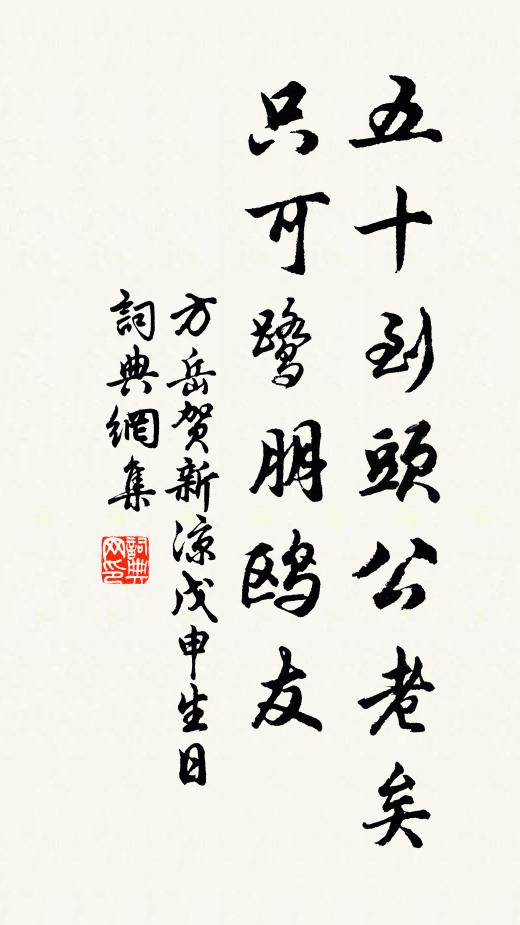 五十到頭公老矣
只可鹭朋鸥友
方岳贺新涼戊申生日
詞典網集
詞典网印